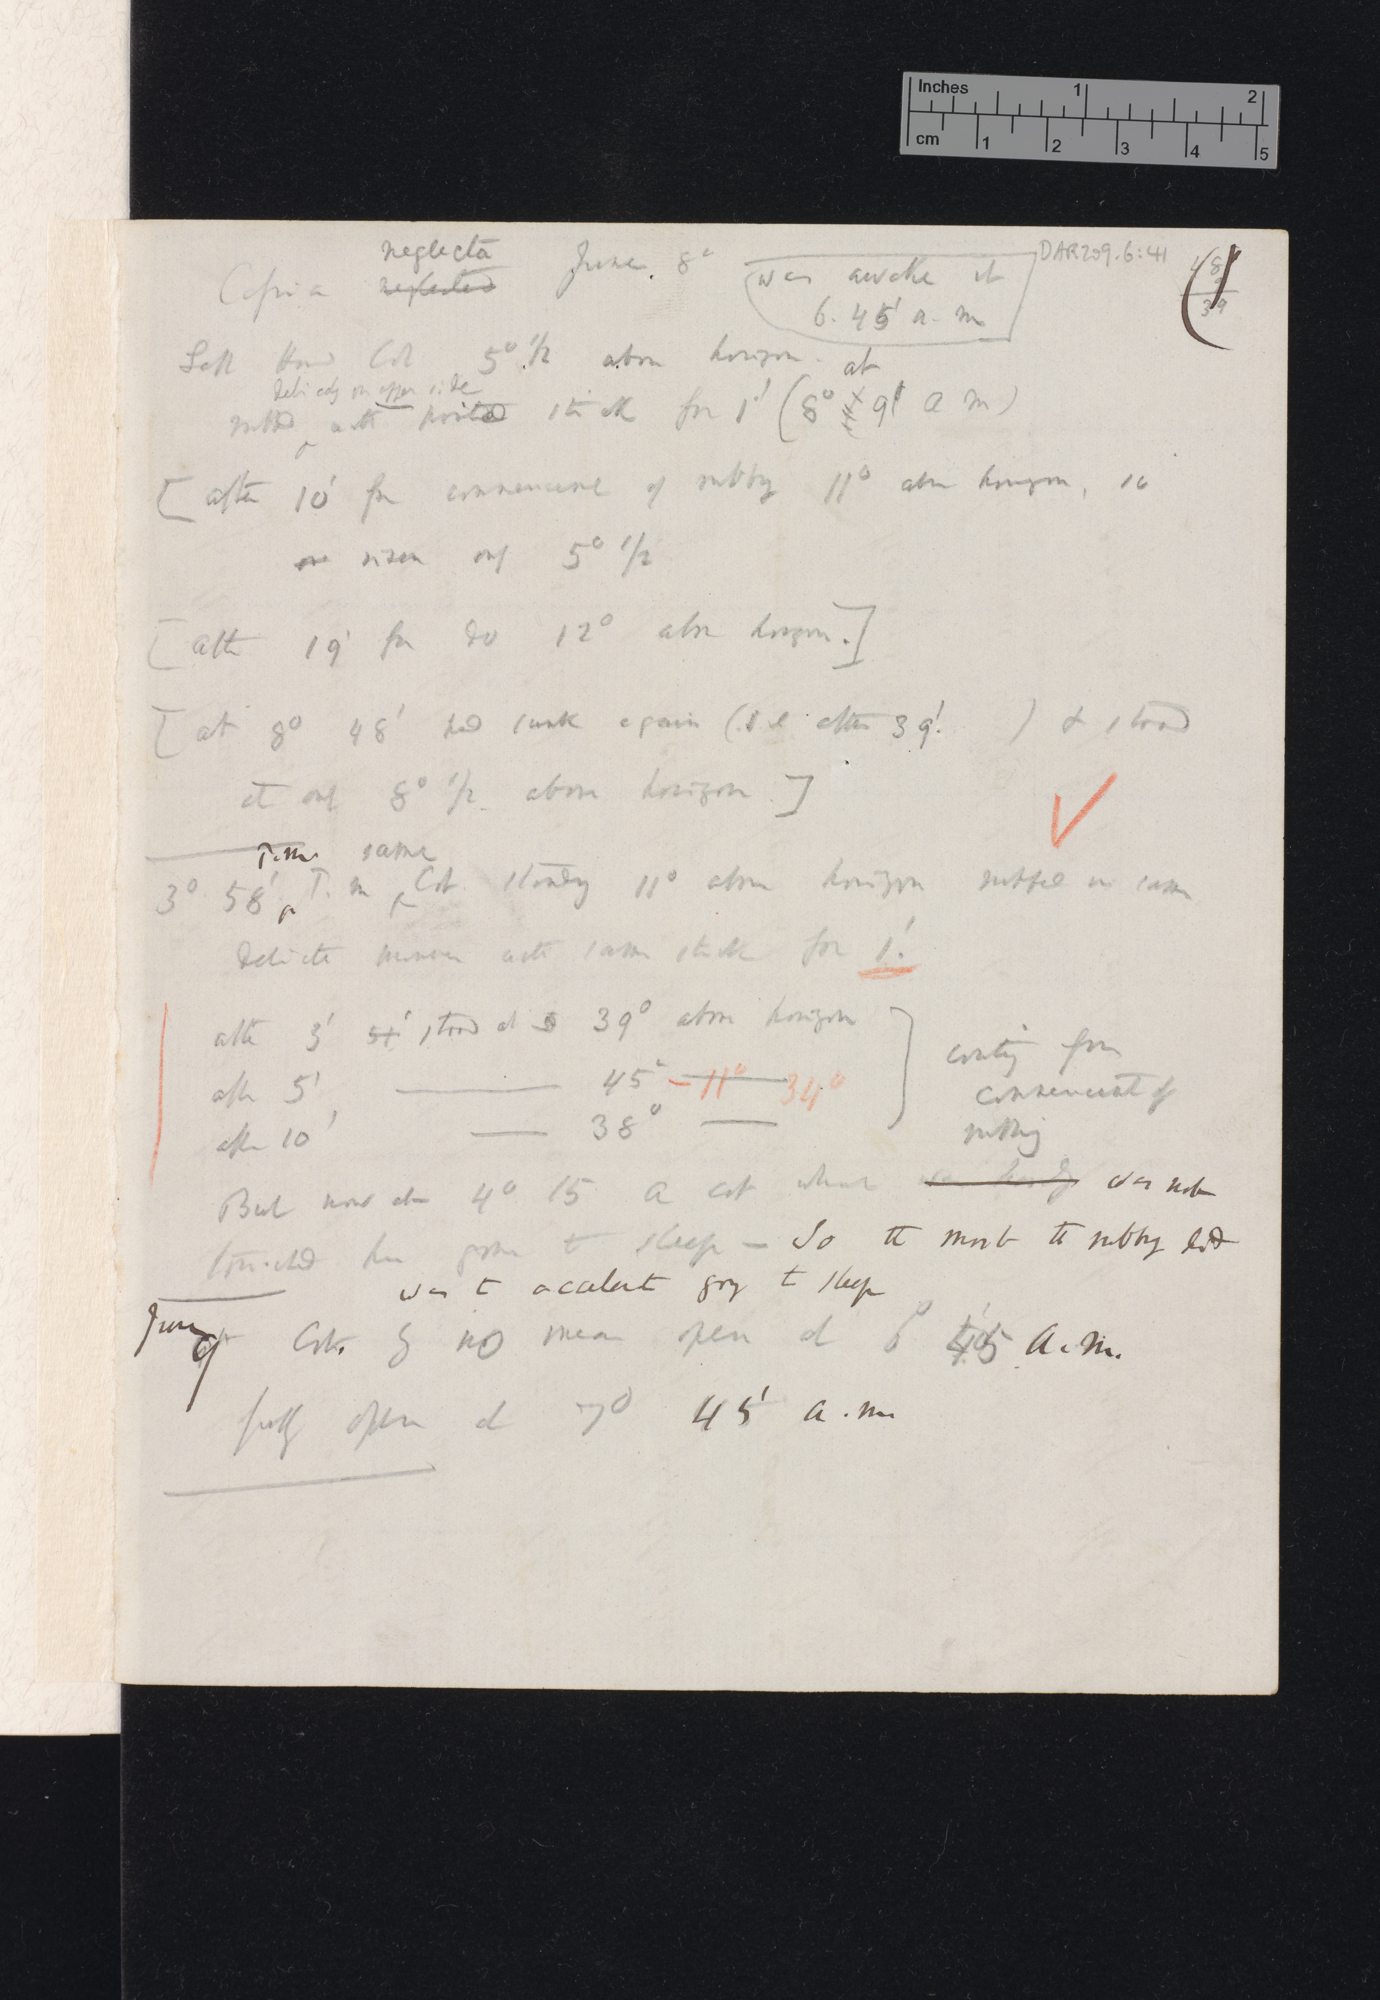 Inches 1 2
cm 1 2 3 4 5
DAR 209.6:41
48
9
39
neglecta
Cassia neglected June 8° was awake at
6. 45' a. m
Left Hand Cot 5° 1/2 above horizon. at
delicately on upper side
rubbed with pointed stick for 1' (8° 9' a m)
[after 10' fr commencement of rubbing 11° above horizon, ie
risen only 5° 1/2
[after 19' fr do 12° above horizon.]
[at 8° 48' had sunk again (i.e after 39'. ) & stood
at only 8° 1/2 above horizon]
P.m. same
3° 58', P. m Cot. standing 11° above horizon rubbed in same
delicate manner with same stick for 1'.
after 3' stood at 39° above horizon
after 5', — 45° — - 11° 34°
after 10' — 38° —
counting from
commencement of
rubbing
But now at 4° 15 a cot which was not
touched has gone to sleep — So the most the rubbing did
was to accelerate going to sleep
June 9 Cot. by no means open at 6° 45 a.m.
fully open at 7° 45' a.m